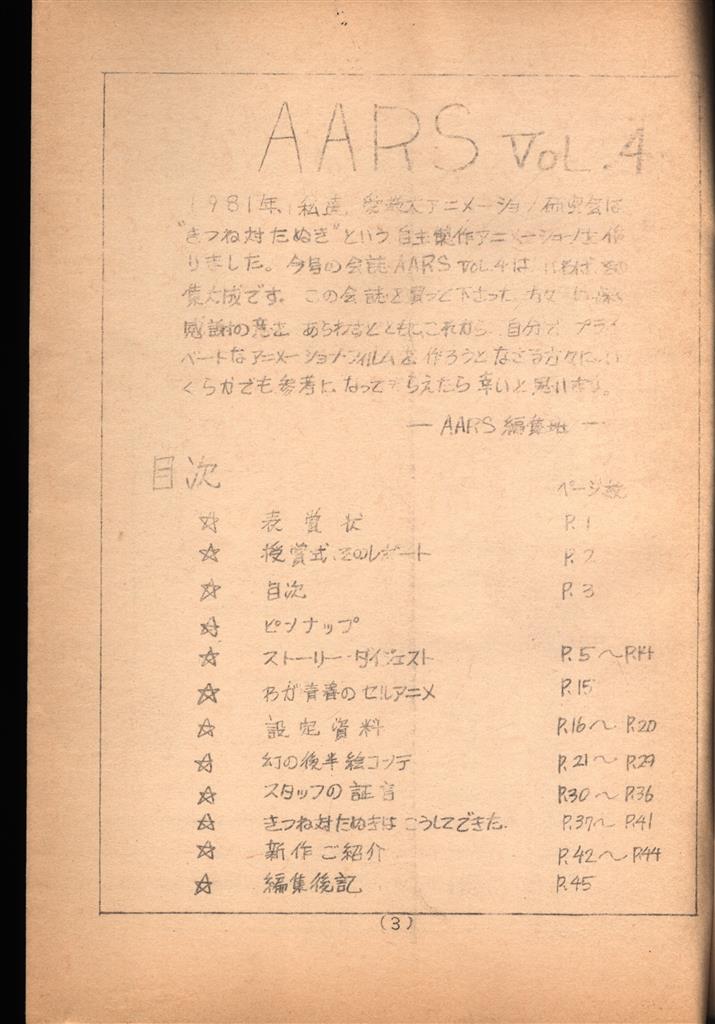 AARS VOL.4
1981年、私達、愛教大アニメーション研究会は
"きつね対たぬき"という自主製作アニメーションを作
りました。今号の会誌AARS VOL.4は、いわば
集大成です。この会誌を買って下さった方々に深い
感謝の意をあらわすとともに、これから、自分で、プライ
ベートなアニメーション・フィルムを作ろうとなさる方々に、い
くらかでも参考になってもらえたら幸いと思います。
― AARS 編集班 ―
目次 ページ数
☆ 表賞状 P.1
☆ 授賞式、そのレポート P.2
☆ 目次 P.3
☆ ピンナップ
☆ ストーリー・ダイジェスト P.5〜P.14
☆ わが青春のセルアニメ P.15
☆ 設定資料 P.16〜P.20
☆ 幻の後半絵コンテ P.21〜P.29
☆ スタッフの証言 P.30〜P.36
☆ きつね対たぬきはこうしてできた. P.37〜P.41
☆ 新作ご紹介 P.42〜P.44
☆ 編集後記 P.45
(3)